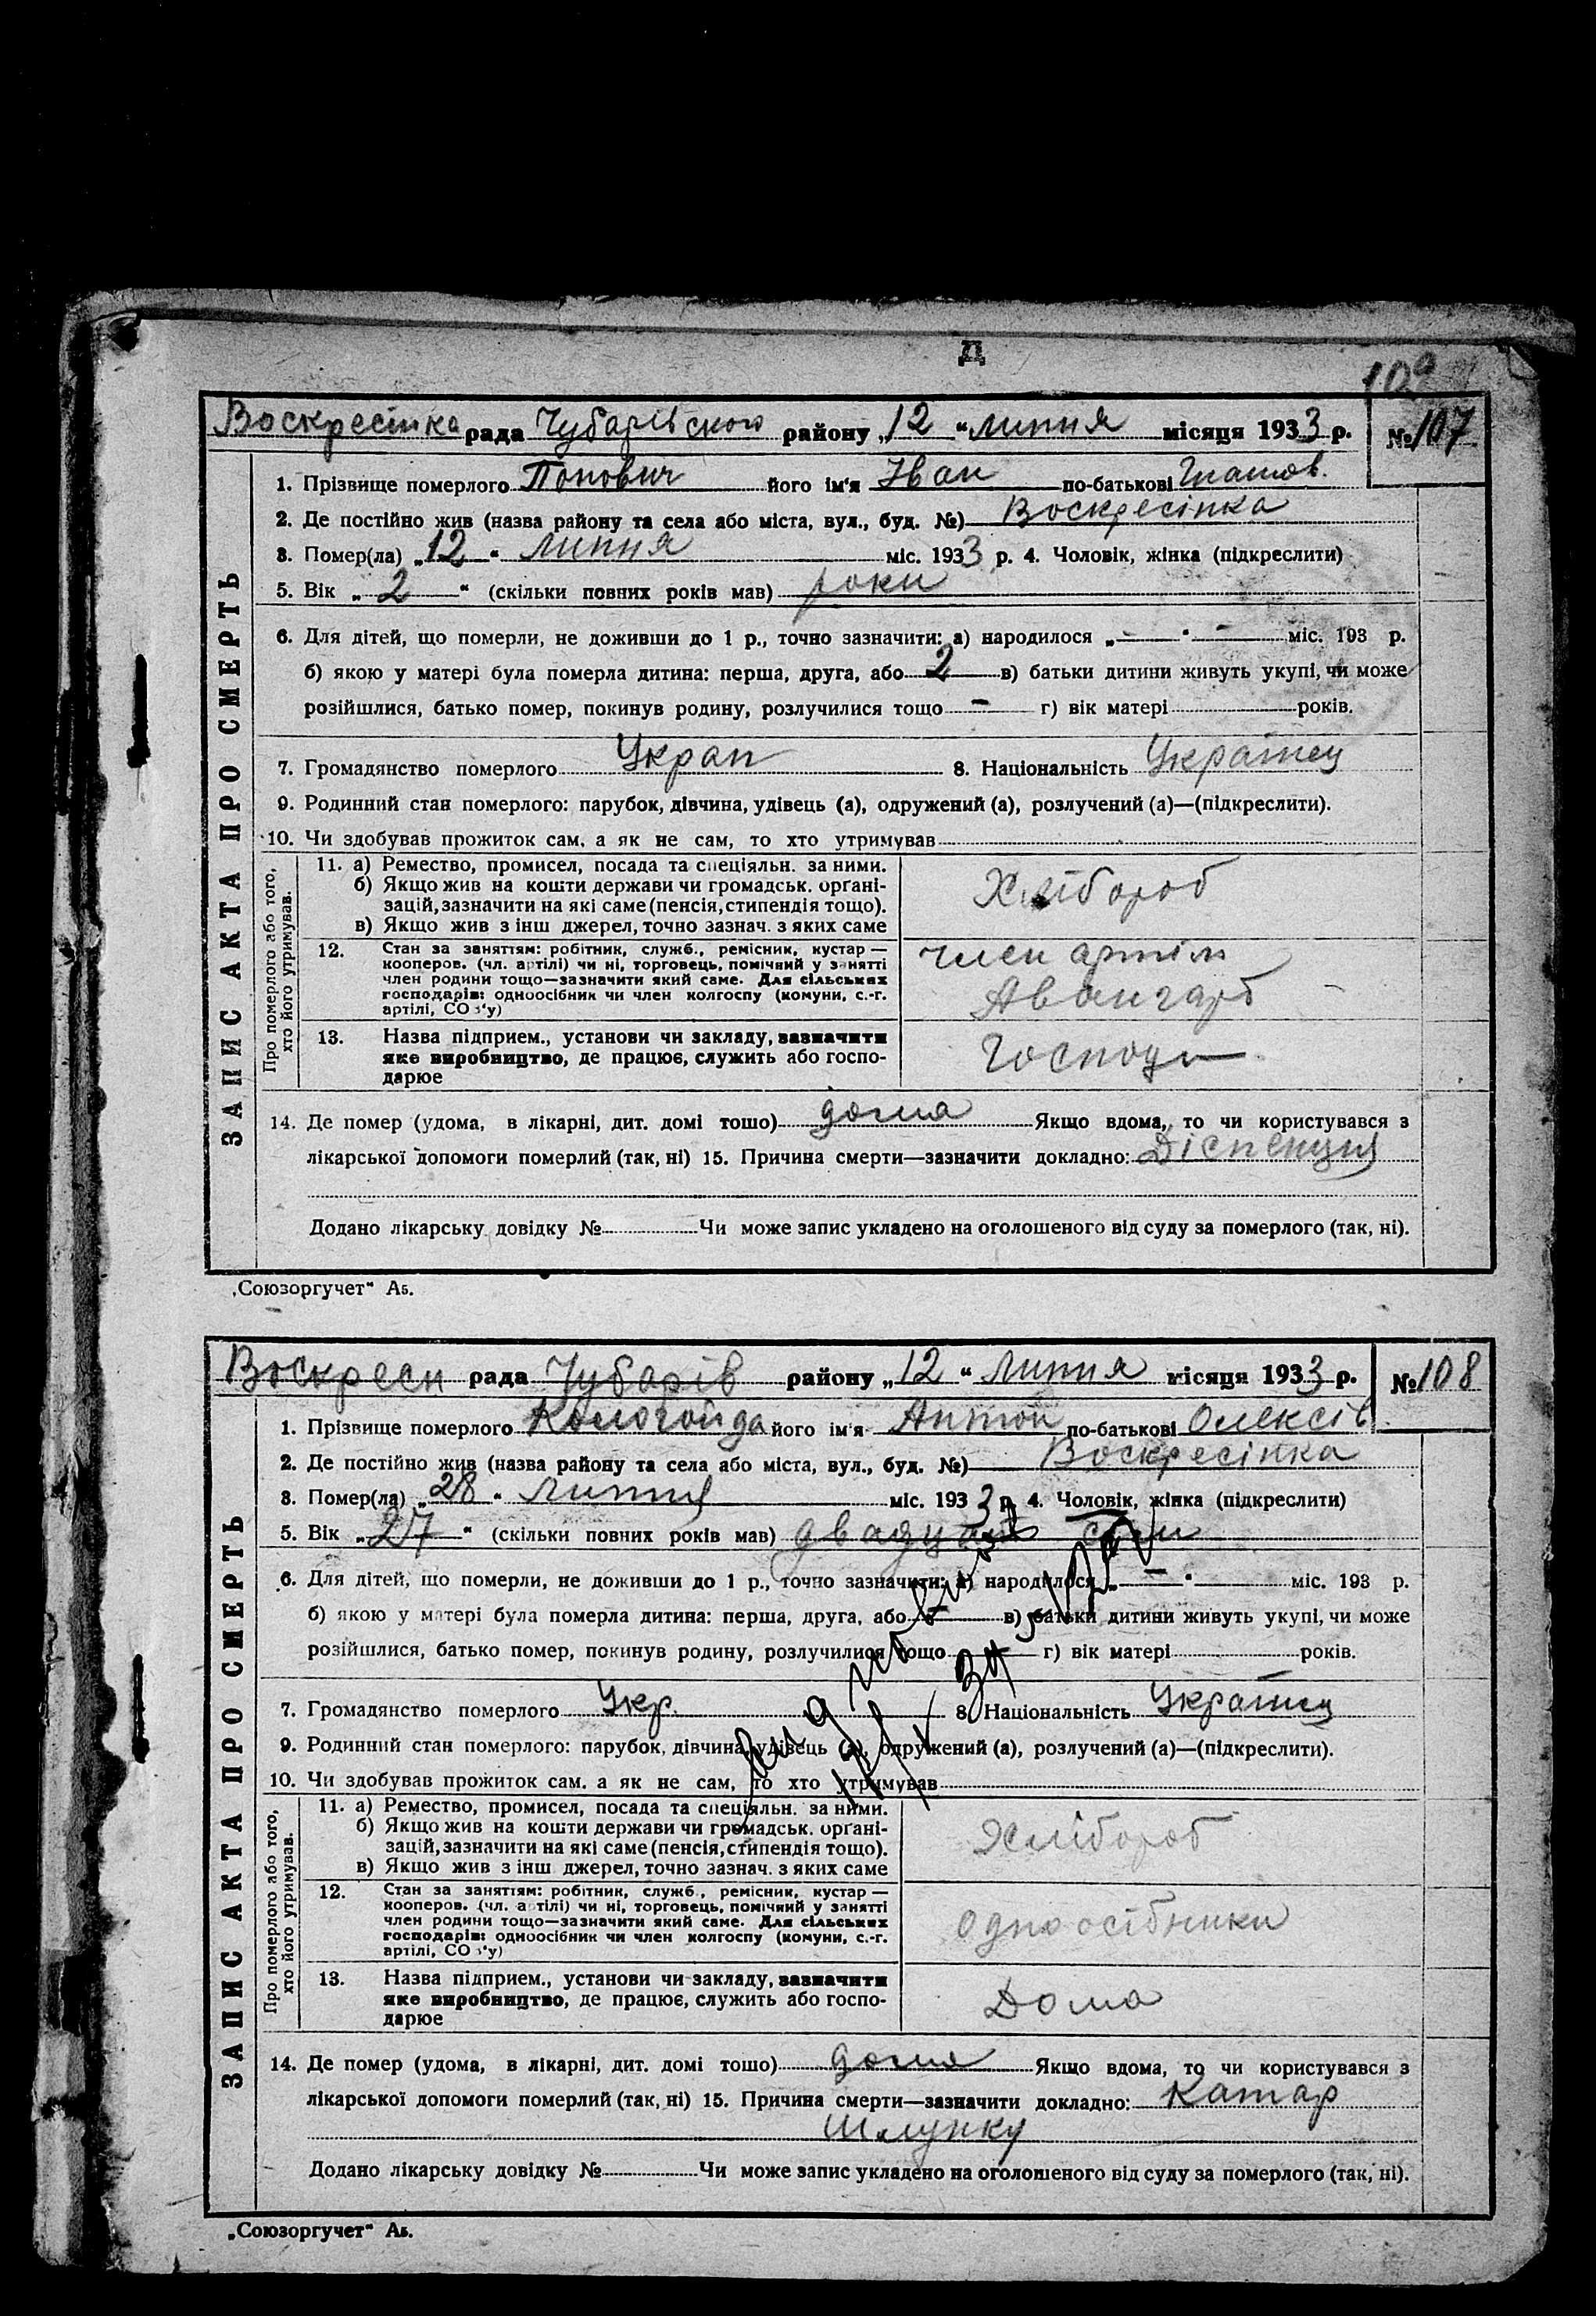 Д
109
Воскресінка рада Чубарівського району „12“ липня місяця 1933 р. № 107
ЗАПИС АКТА ПРО СМЕРТЬ
1. Прізвище померлого Попович його ім'я Іван по-батькові Гнатов.
2. Де постійно жив (назва району та села або міста, вул., буд. №) Воскресінка
3. Помер(ла) „12“ липня міс. 1933 р. 4. Чоловік, жінка (підкреслити)
5. Вік „2“ (скільки повних років мав) роки
6. Для дітей, що померли, не доживши до 1 р., точно зазначити: а) народилося „—“ — міс. 193 р.
б) якою у матері була померла дитина: перша, друга, або 2 в) батьки дитини живуть укупі, чи може
розійшлися, батько помер, покинув родину, розлучилися тощо — г) вік матері років.
7. Громадянство померлого Украп 8. Національність Українец
9. Родинний стан померлого: парубок, дівчина, удівець (а), одружений (а), розлучений (а)—(підкреслити).
10. Чи здобував прожиток сам, а як не сам, то хто утримував
Про померлого або того, хто його утримував.
11. а) Ремество, промисел, посада та спеціяльн. за ними.
б) Якщо жив на кошти держави чи громадськ. орґані-
зацій, зазначити на які саме (пенсія, стипендія тощо).
в) Якщо жив з інш джерел, точно зазнач. з яких саме
Хлібороб
12. Стан за заняттям: робітник, служб., ремісник, кустар —
кооперов. (чл. артілі) чи ні, торговець, помічний у занятті
член родини тощо—зазначити який саме. Для сільських
господарів: одноосібник чи член колгоспу (комуни, с.-г.
артілі, СОЗ'у)
член артіли
Авангард
13. Назва підприєм., установи чи закладу, зазначити
яке виробництво, де працює, служить або госпо-
дарює
14. Де помер (удома, в лікарні, дит. домі тощо) дома Якщо вдома, то чи користувався з
лікарської допомоги померлий (так, ні) 15. Причина смерти—зазначити докладно: Діспенция
Додано лікарську довідку № Чи може запис укладено на оголошеного від суду за померлого (так, ні).
„Союзоргучет“ Аб.
Воскресн рада Чубарів району „12“ липня місяця 1933 р. № 108
ЗАПИС АКТА ПРО СМЕРТЬ
1. Прізвище померлого Кологойда його ім'я Антон по-батькові Олексів
2. Де постійно жив (назва району та села або міста, вул., буд. №) Воскресінка
3. Помер(ла) „28“ липня міс. 1933 р. 4. Чоловік, жінка (підкреслити)
5. Вік „27“ (скільки повних років мав) двадцать сім
6. Для дітей, що померли, не доживши до 1 р., точно зазначити: а) народилося „—“ міс. 193 р.
б) якою у матері була померла дитина: перша, друга, або — в) батьки дитини живуть укупі, чи може
розійшлися, батько помер, покинув родину, розлучилися тощо г) вік матері років.
7. Громадянство померлого Укр. 8. Національність Українец
9. Родинний стан померлого: парубок, дівчина, удівець (а), одружений (а), розлучений (а)—(підкреслити).
10. Чи здобував прожиток сам, а як не сам, то хто утримував
Про померлого або того, хто його утримував.
11. а) Ремество, промисел, посада та спеціяльн. за ними.
б) Якщо жив на кошти держави чи громадськ. орґані-
зацій, зазначити на які саме (пенсія, стипендія тощо).
в) Якщо жив з інш джерел, точно зазнач. з яких саме
Хлібороб
12. Стан за заняттям: робітник, служб., ремісник, кустар —
кооперов. (чл. артілі) чи ні, торговець, помічний у занятті
член родини тощо—зазначити який саме. Для сільських
господарів: одноосібник чи член колгоспу (комуни, с.-г.
артілі, СОЗ'у)
одноосібники
13. Назва підприєм., установи чи закладу, зазначити
яке виробництво, де працює, служить або госпо-
дарює
Дома
14. Де помер (удома, в лікарні, дит. домі тощо) дома Якщо вдома, то чи користувався з
лікарської допомоги померлий (так, ні) 15. Причина смерти—зазначити докладно: Катар
шлунку
Додано лікарську довідку № Чи може запис укладено на оголошеного від суду за померлого (так, ні).
„Союзоргучет“ Аб.